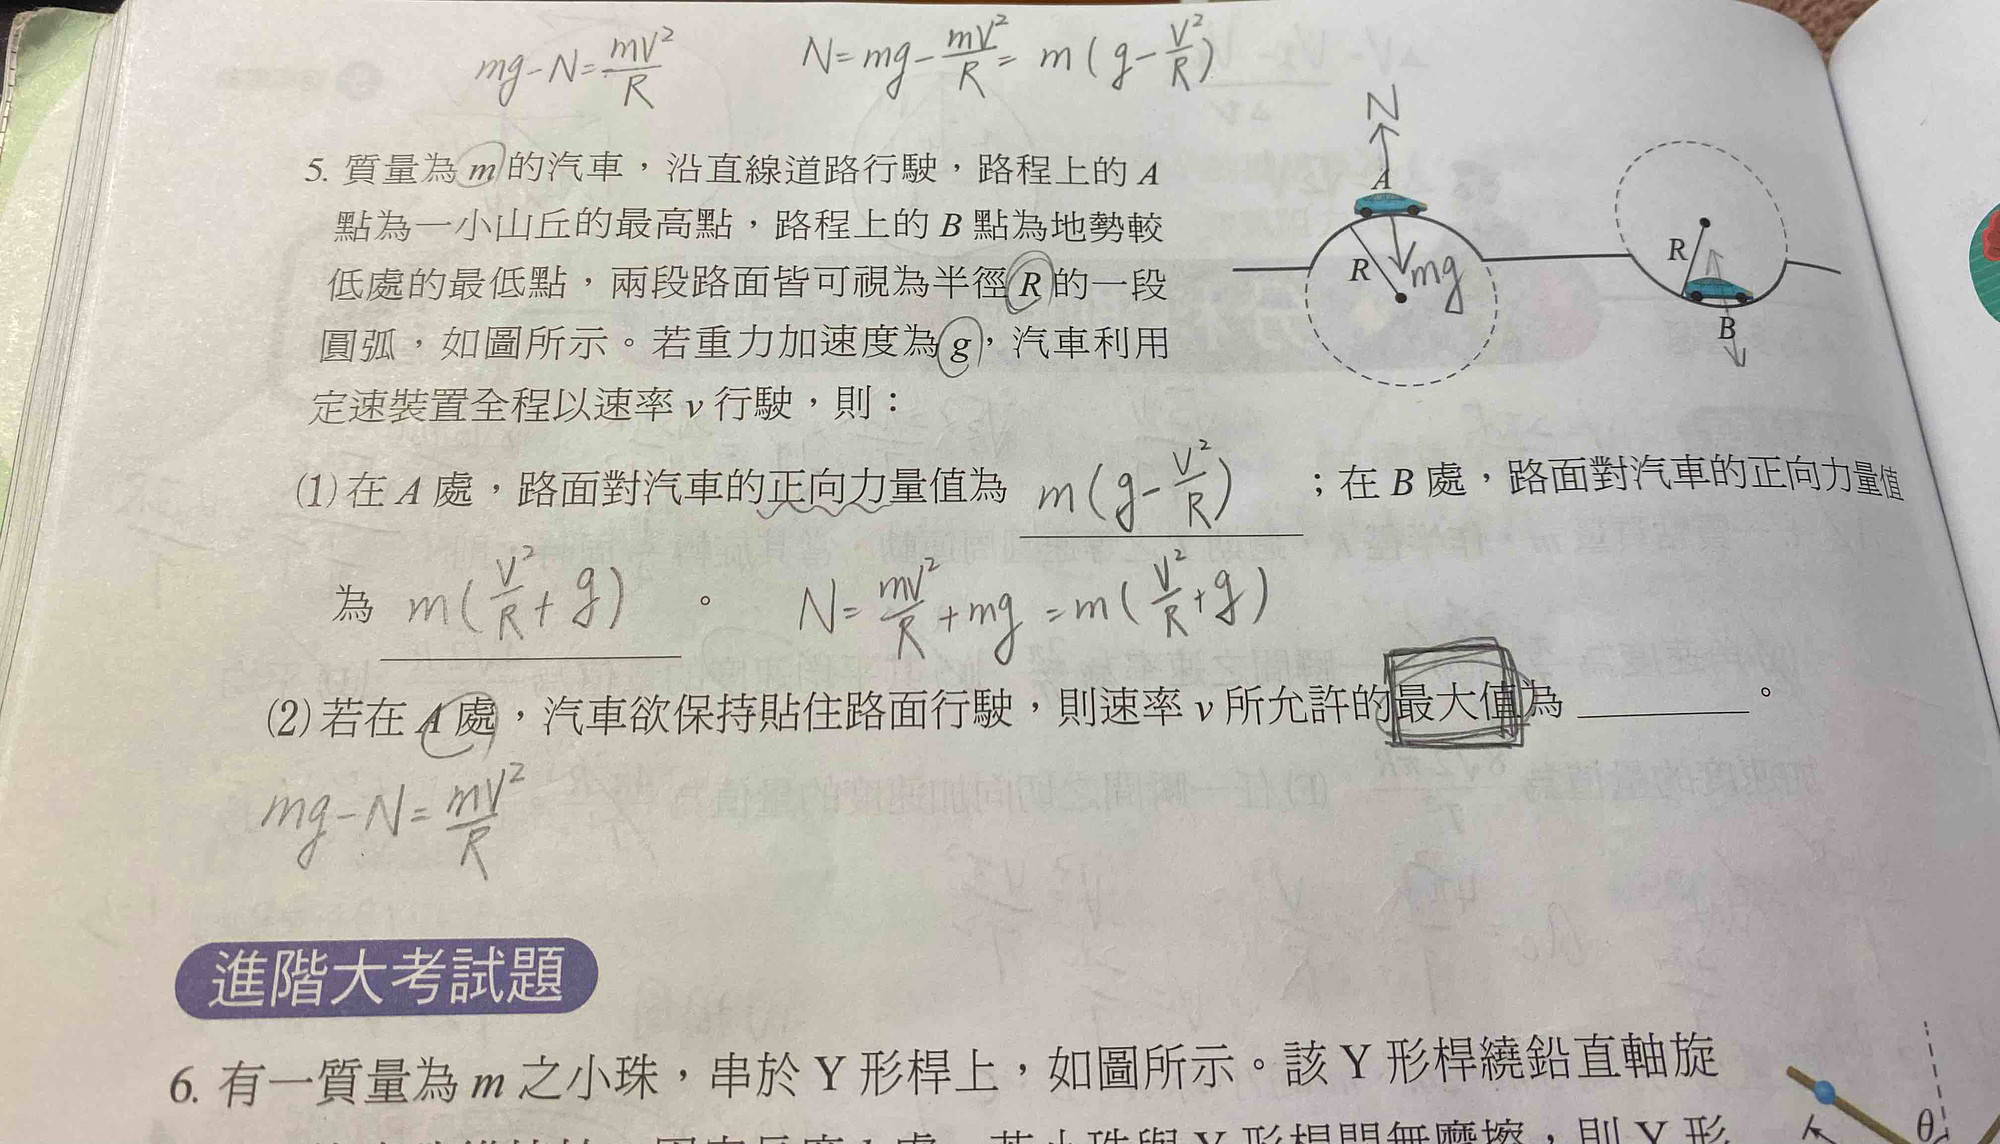 mg-N=mv²/R  N=mg-mv²/R=m(g-v²/R)
N
5. 質量為 m 的汽車，沿直線道路行駛，路程上的 A
A
點為一小山丘的最高點，路程上的 B 點為地勢較
低處的最低點，兩段路面皆可視為半徑 R 的一段
R mg R
B
圓弧，如圖所示。若重力加速度為 g，汽車利用
定速裝置全程以速率 v 行駛，則：
(1) 在 A 處，路面對汽車的正向力量值為 m(g-v²/R) ；在 B 處，路面對汽車的正向力量值
為 m(v²/R+g) 。 N=mv²/R+mg=m(v²/R+g)
(2) 若在 A 處，汽車欲保持貼住路面行駛，則速率 v 所允許的最大值為 ________。
mg-N=mv²/R
進階大考試題
6. 有一質量為 m 之小珠，串於 Y 形桿上，如圖所示。該 Y 形桿繞鉛直軸旋
θ